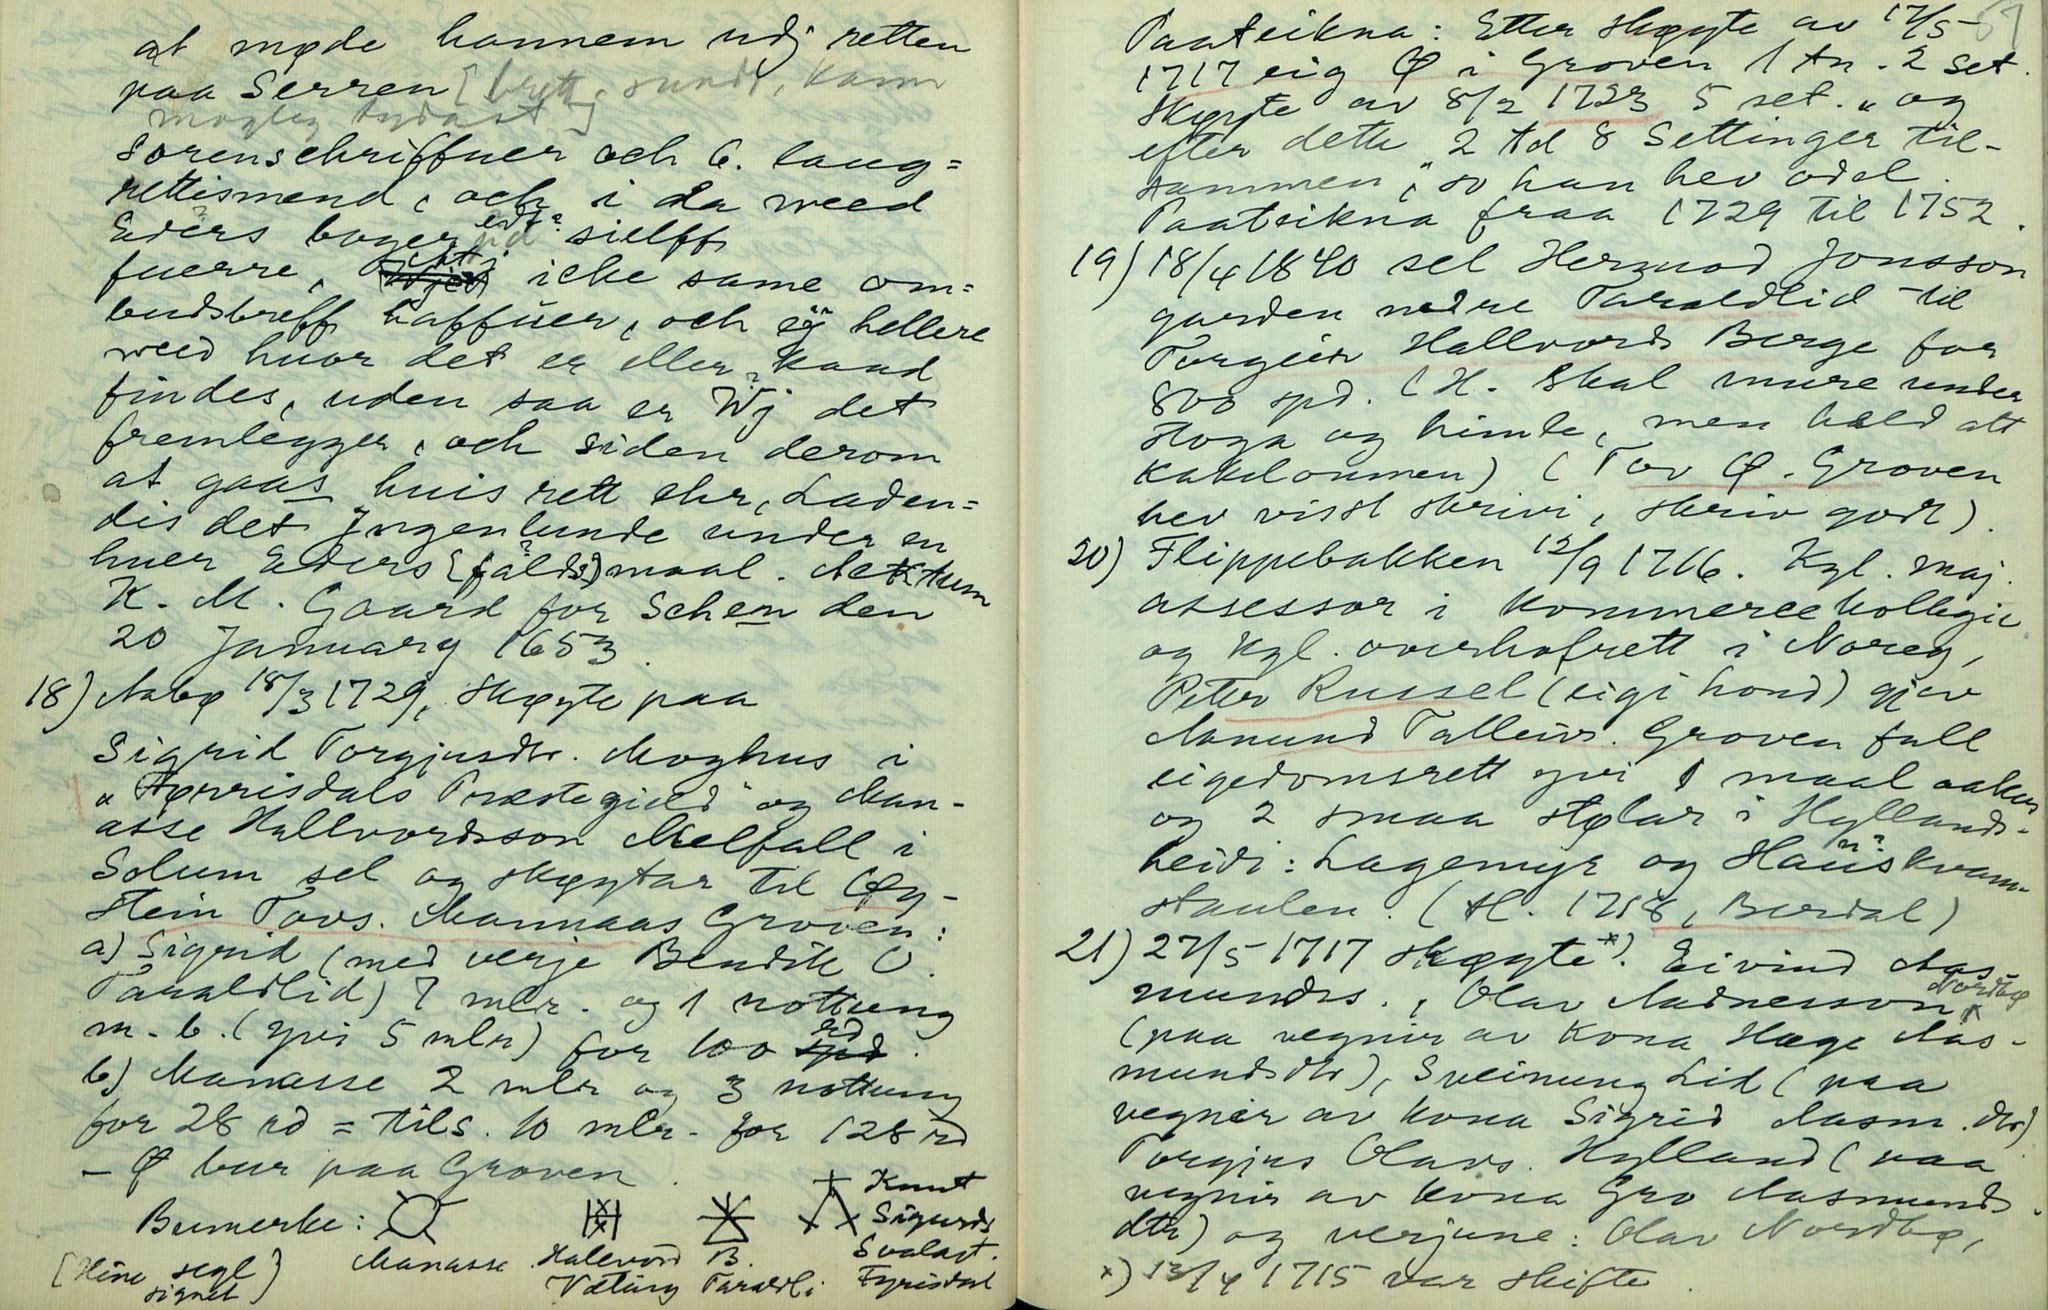 at møde hannem udj retten
paa Serren [brett, sundt, kann
mogleg tydast]
Sorenschriffuer och 6. laug=
rettismend, och i da weed
Eders bøger edt? sielff
fuerre, icke same om=
budsbreff haffuer, och ej hellere
weed huor det er eller kand
findes, uden saa er Wj det
fremlegger, och siden derom
at gaas huis rett ehr, Laden=
dis det Jngenlunde under en
huer Eders (fald?) maal. Actum
K. M. Gaard for Schen den
20 January 1653.
18) Aabø 18/3 1729, skøyte paa
Sigrid Torgjusdtr. Moghus i
"Tørrisdals Præstegield" og Man-
asse Hallvordsson Melfall i
Solum sel og skøytar til Øy-
stein Tovs. Mannaas Groven:
a) Sigrid (med verje Bendik O.
Taraldlid) 7 mlr. og 1 nottung
m. b. (yvi 5 mlr) for 100 rd.
b) Manasse 2 mlr og 3 nottung
for 28 rd = tils. 10 mlr. for 128 rd
- Ø bur paa Groven.
Bumerke:
Manasse Halvord B. Knut
Vetling Taraldli Sigurds
Svalast.
Fyrisdal
[Hine segl
signet]
57
Paateikna: Etter skøyte av 17/5
1717 eig Ø i Groven 1 tn. 2 set.
Skøyte av 8/2 1723 5 set. " og
efter dette "2 td 8 Settinger til-
sammen", so han hev odel.
Paateikna fraa 1729 til 1752.
19) 18/4 1840 sel Hermod Jonsson
garden nedre Taraldlid til
Torgeir Hallvords Berge for
800 spd. (H. skal mure under
stoga og himle, men hald att
kakelomnen) (Tov Ø. Groven
hev visst skrivi, skriv godt).
20) Flippebakken 12/9 1716. Kgl. maj.
assessor i Kommercekollegie
og kgl. overhofrett i Noreg,
Peter Russel (eigi hond) gjev
Aamund Talleivs. Groven full
eigedomsrett yvi 1 maal aaker
og 2 smaa stølar i Hyllands-
heidi: Lagemyr og Hauskvam-
staulen. (H. 1718, Burdal)
21) 27/5 1717 skøyte x). Eivind Aas-
mundss., Olav Aadnesson Nordbø
(paa vegnir av kona Hæge Aas-
mundsdtr), Sveinung Lid (paa
vegnir av kona Sigrid Aasm.dtr)
Torgjus Olavs. Hylland (paa
vegnir av kona Gro Aasmunds-
dtr) og verjune: Olav Nordbø,
x) 13/4 1715 var skifte